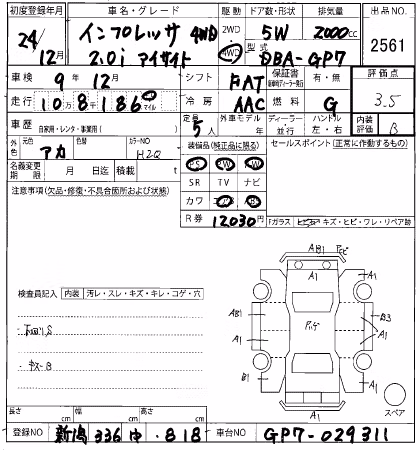 初度登録年月 車名・グレード 駆動 ドア数・形状 排気量 出品NO
24/12月 インプレッサ 4WD 2WD 5W 2000cc 2561
2.0i アイサイト 4WD 型式 DBA-GP7
車検 9年12月 シフト FAT 保証書 新車時保証書 ディーラー発行 有・無 評価点
走行 10万8千186 km マイル 冷房 AAC 燃料 G 3.5
車歴 自家用・レンタ・事業用( ) 定員 5人 外車モデル 年 ディーラー・並行 ハンドル 左・右 内装評価 B
外色 元色 アカ 色 カラーNO H2Q 装備品(純正品に限る) セールスポイント(正常に作動するもの)
名義変更期限 月 日迄 積載 t PS PW
SR TV ナビ
注意事項(欠品・修復・不具合箇所および状態) カワ
R券 12030円 「ガラス ヒビ・キズ・ヒビ・ワレ・リペア跡
AB1
A1
検査員記入 内装 汚レ・スレ・キズ・キレ・コゲ・穴
A1 A1
AB1 B3
A1
キズ-B
A1
B1 A1
A1
スペア
長さ cm 幅 cm 高さ cm
登録NO 新潟 336 ゆ 818 車台NO GP7-029311